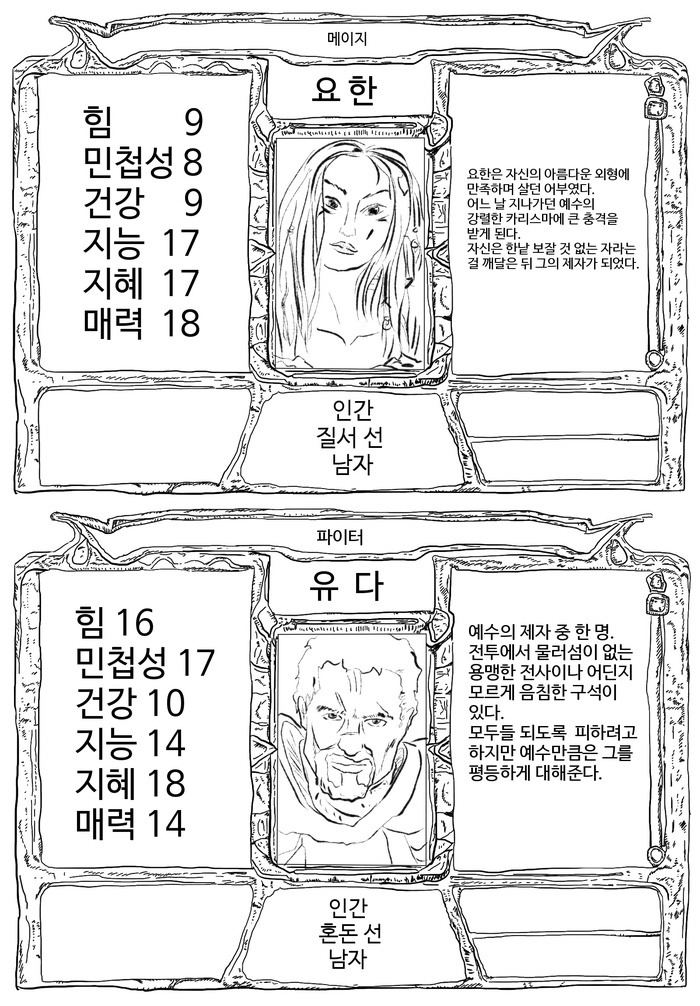 메이지
요한
힘 9
민첩성 8
건강 9
지능 17
지혜 17
매력 18
요한은 자신의 아름다운 외형에
만족하며 살던 어부였다.
어느 날 지나가던 예수의
강렬한 카리스마에 큰 충격을
받게 된다.
자신은 한낱 보잘 것 없는 자라는
걸 깨달은 뒤 그의 제자가 되었다.
인간
질서 선
남자
파이터
유 다
힘 16
민첩성 17
건강 10
지능 14
지혜 18
매력 14
예수의 제자 중 한 명.
전투에서 물러섬이 없는
용맹한 전사이나 어딘지
모르게 음침한 구석이
있다.
모두들 되도록 피하려고
하지만 예수만큼은 그를
평등하게 대해준다.
인간
혼돈 선
남자